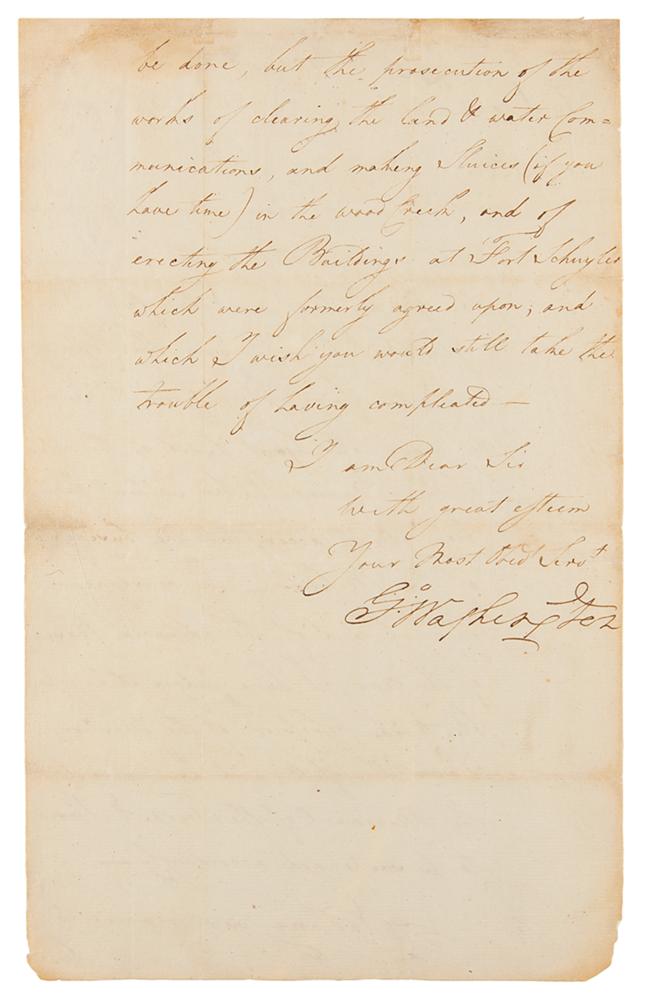 be done, but the prosecution of the
works of clearing the land & water Com=
munications, and making Sluices (if you
have time) in the wood Creek, and of
erecting the Buildings at Fort Schuyler
which were formerly agreed upon; and
which I wish you would still take the
trouble of having compleated —
I am Dear Sir
with great esteem
Your Most Obedt Servt
Go: Washington